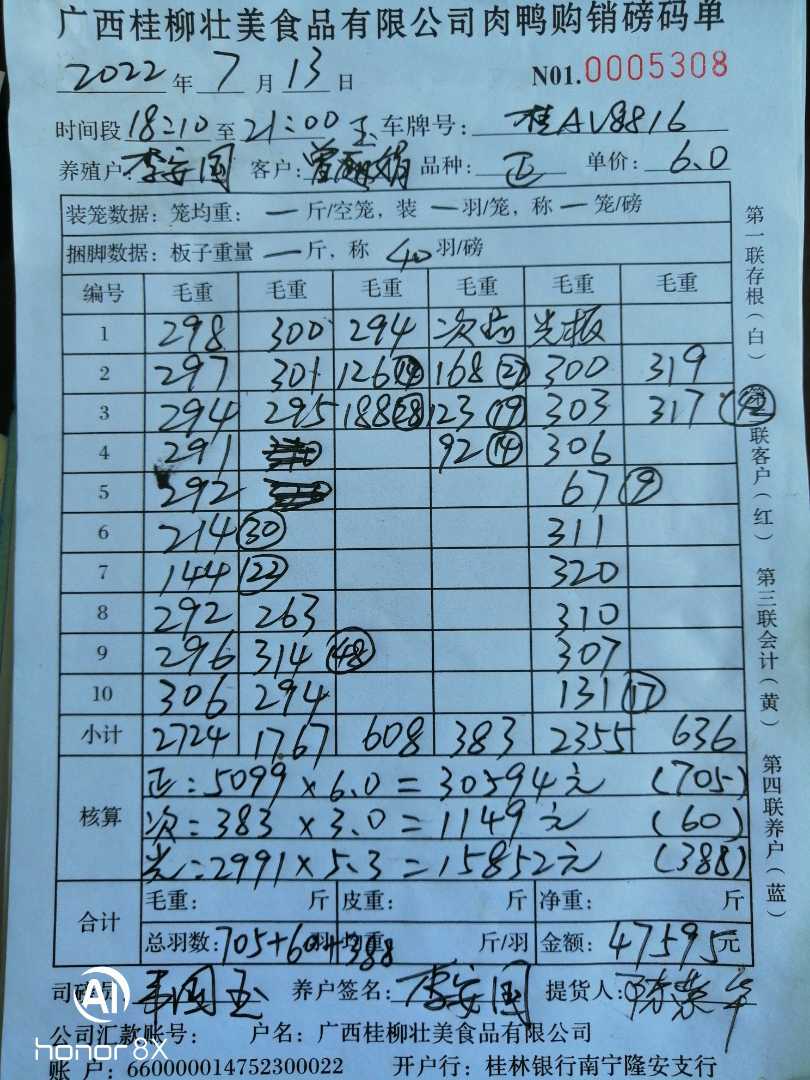 广西桂柳壮美食品有限公司肉鸭购销磅码单
2022年7月13日 N01.0005308
时间段18:10至21:00 玉 车牌号:桂AV8816
养殖户:李安国 客户:曾 品种:正 单价:6.0
装笼数据:笼均重:一斤/空笼,装一羽/笼,称一笼/磅
捆脚数据:板子重量一斤,称40羽/磅
编号 毛重 毛重 毛重 毛重 毛重 毛重
1 298 300 294 次 光板
2 297 301 126(14) 168(27) 300 319
3 294 295 188(28) 123(19) 303 317(42)
4 291 92(14) 306
5 292 67(9)
6 214(30) 311
7 144(22) 320
8 292 263 310
9 296 314(48) 307
10 306 294 131(17)
小计 2724 1767 608 383 2355 636
核算 正:5099×6.0=30594元 (705)
次:383×3.0=1149元 (60)
光:2991×5.3=15852元 (388)
合计 毛重: 斤 皮重: 斤 净重: 斤
总羽数:705+60+388 斤/羽 金额:47595元
司磅员:韦国玉 养户签名:李安国 提货人:
公司汇款账号: 户名:广西桂柳壮美食品有限公司
账户:660000014752300022 开户行:桂林银行南宁隆安支行
第一联存根(白) 第二联客户(红) 第三联会计(黄) 第四联养户(蓝)
AI
honor 8X